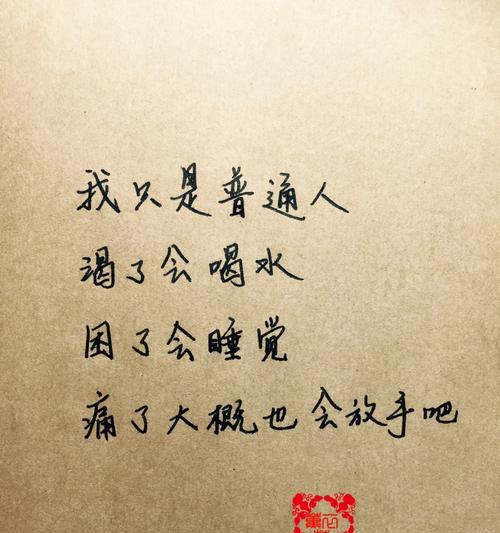 我只是普通人
渴了会喝水
困了会睡觉
痛了大概也会放手吧